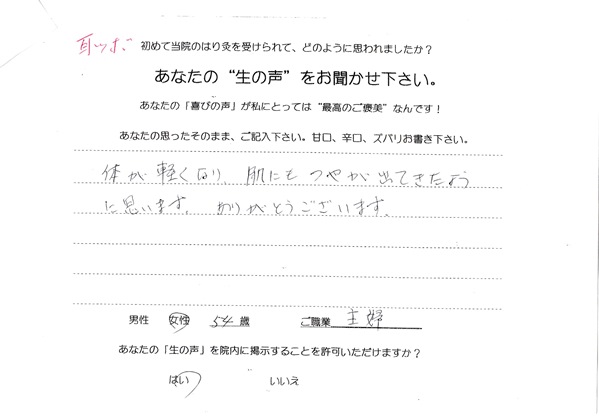 耳ツボ 初めて当院のはり灸を受けられて、どのように思われましたか？
あなたの“生の声”をお聞かせ下さい。
あなたの「喜びの声」が私にとっては“最高のご褒美”なんです！
あなたの思ったそのまま、ご記入下さい。甘口、辛口、ズバリお書き下さい。
体が軽くなり、肌にもつやが出てきたよう
に思います。ありがとうございます。
男性 女性 54 歳 ご職業 主婦
あなたの「生の声」を院内に掲示することを許可いただけますか？
はい いいえ